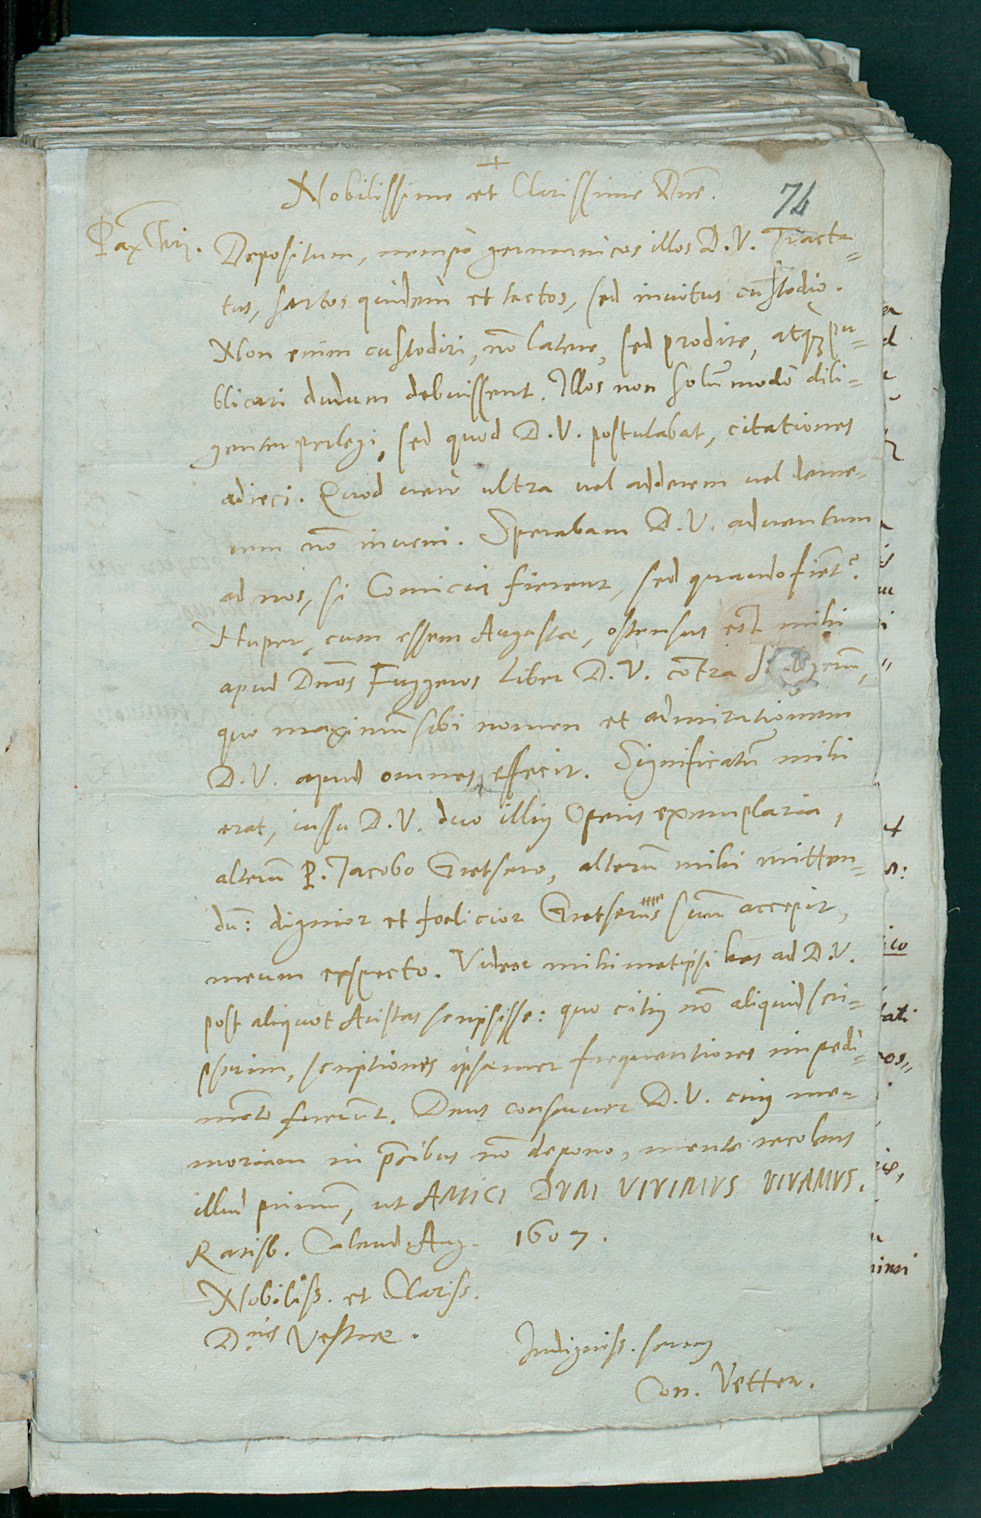 +
Nobilissime et Clarissime Dnē.
74
Pax Chri. Depositum, nempe germanicos illos D.V. Tracta=
tus, sartos quidem et tectos, sed invitus custodio.
Non enim custodiri, nō latere, sed prodire, atqȝ pu=
blicari dudum debuissent. Illos non solū modo dili=
genter perlegi, sed quod D.V. postulabat, citationes
adieci. Quod vero ultra vel adderem vel deme=
rem nō inveni. Sperabam D.V. adventum
ad nos, si Comicia fierent, sed quando fiēt?
Nuper, cum essem Augustae, ostensus est mihi
apud Dnōs Fuggeros Liber D.V. cōtra
quo maximū sibi nomen et admirationem
D.V. apud omnes effecit. Significatū mihi
erat, iussu D.V. duo illius Operis exemplaria,
alterū P. Jacobo Gretsero, alterū mihi mitten=
dū: dignior et foelicior Gretserus suū accepit,
meum exspecto. Videor mihimetipsi has ad D.V.
post aliquot Aristas scripsisse: quo citius nō aliquid scri=
pserim, scriptiones ipsaemet frequentiores impedi=
mēto fuerūt. Deus conservet D.V. cuius me=
moriam in p̄cibus nō depono, mente recolens
illud primū, ut AMICI DUM VIVIMUS VIVAMUS.
Ratisb. Calend. Aug. 1607.
Nobiliss. et Clariss.
D.nis Vestrae.
Indigniss. servus
Con. Vetter.